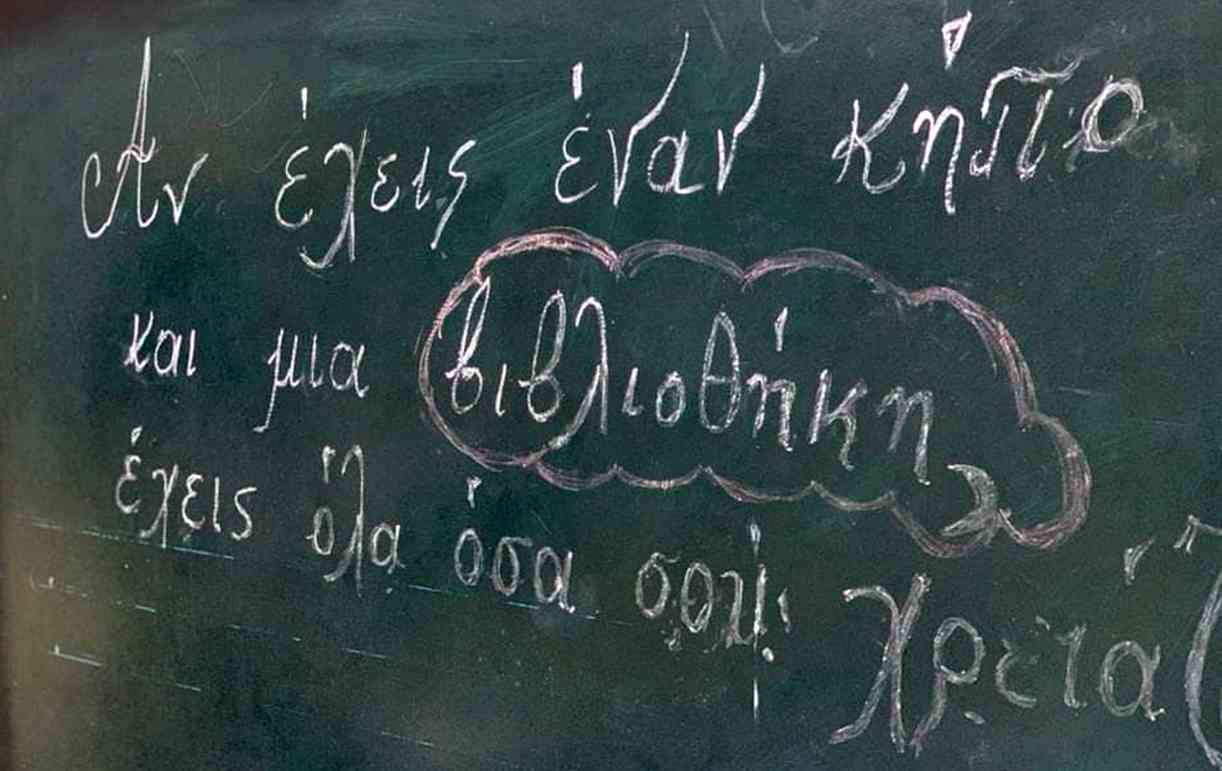 Αν έχεις έναν κήπο
και μια βιβλιοθήκη
έχεις όλα όσα σου